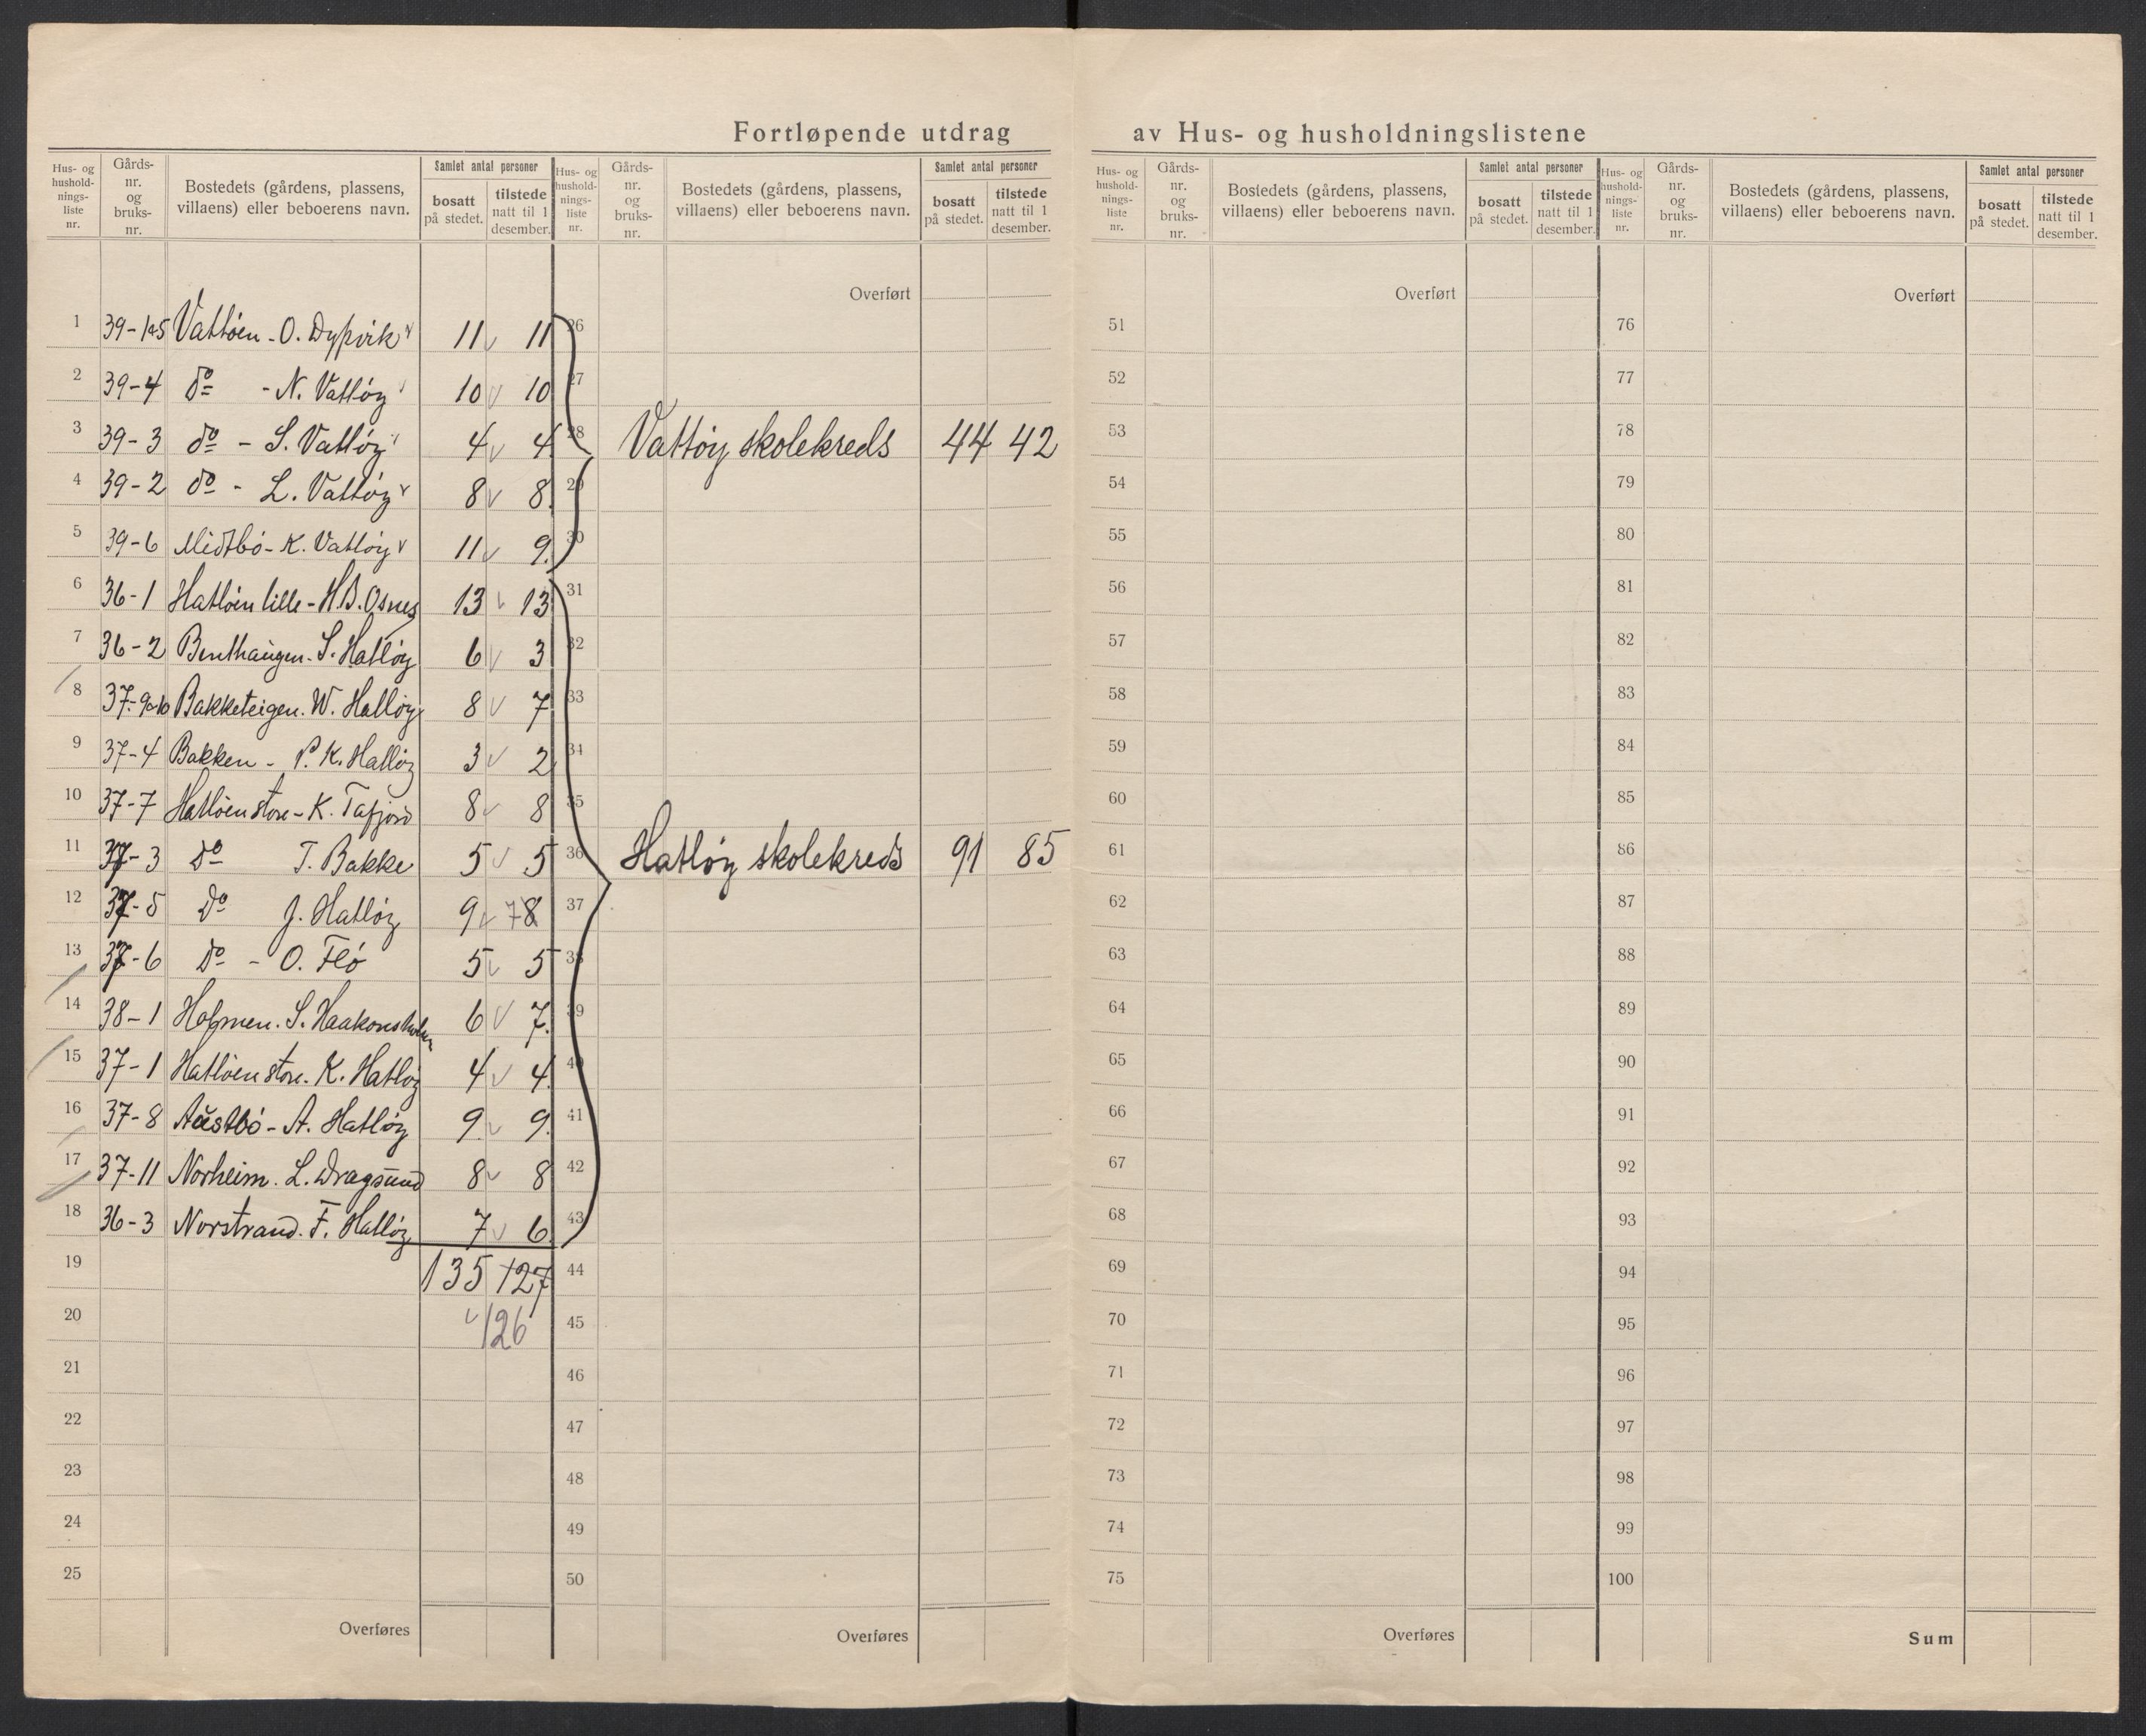 Fortløpende utdrag av Hus- og husholdningslistene
Hus- og husholdnings-liste nr. | Gårds-nr. og bruks-nr. | Bostedets (gårdens, plassens, villaens) eller beboerens navn. | Samlet antal personer | bosatt på stedet. | tilstede natt til 1 desember.
Hus- og husholdnings-liste nr. | Gårds-nr. og bruks-nr. | Bostedets (gårdens, plassens, villaens) eller beboerens navn. | Samlet antal personer | bosatt på stedet. | tilstede natt til 1 desember.
Hus- og husholdnings-liste nr. | Gårds-nr. og bruks-nr. | Bostedets (gårdens, plassens, villaens) eller beboerens navn. | Samlet antal personer | bosatt på stedet. | tilstede natt til 1 desember.
Hus- og husholdnings-liste nr. | Gårds-nr. og bruks-nr. | Bostedets (gårdens, plassens, villaens) eller beboerens navn. | Samlet antal personer | bosatt på stedet. | tilstede natt til 1 desember.
1 39-1a5 Vattöen - O. Dypvik 11 11
2 39-4 do - N. Vattöy 10 10
3 39-3 do - S. Vattöy 4 4
4 39-2 do - L. Vattöy 8 8
5 39-6 Midtbö - K. Vattöy 11 9
6 36-1 Hatlöen lille - H.B. Osnes 13 13
7 36-2 Benthaugen. S. Hatlöy 6 3
8 37-9a10 Bakketeigen. W. Hatlöy 8 7
9 37-4 Bakken - P. K. Hatlöy 3 2
10 37-7 Hatlöen store - K. Tafjord 8 8
11 37-3 Do T. Bakke 5 5
12 37-5 Do J. Hatlöy 9 7 8
13 37-6 Do - O. Flö 5 5
14 38-1 Holmen. S. Haakonsholm 6 7
15 37-1 Hatlöen store. K. Hatlöy 4 4
16 37-8 Austbö - A. Hatlöy 9 9
17 37-11 Norheim. L. Dragsund 8 8
18 36-3 Norstrand. F. Hatlöy 7 6
19 135 127
20 126
21
22
23
24
25
Overføres
Overført
26
27
28 Vattöy skolekreds 44 42
29
30
31
32
33
34
35
36 Hatlöy skolekreds 91 85
37
38
39
40
41
42
43
44
45
46
47
48
49
50
Overføres
Overført
51
52
53
54
55
56
57
58
59
60
61
62
63
64
65
66
67
68
69
70
71
72
73
74
75
Overføres
Overført
76
77
78
79
80
81
82
83
84
85
86
87
88
89
90
91
92
93
94
95
96
97
98
99
100
Sum